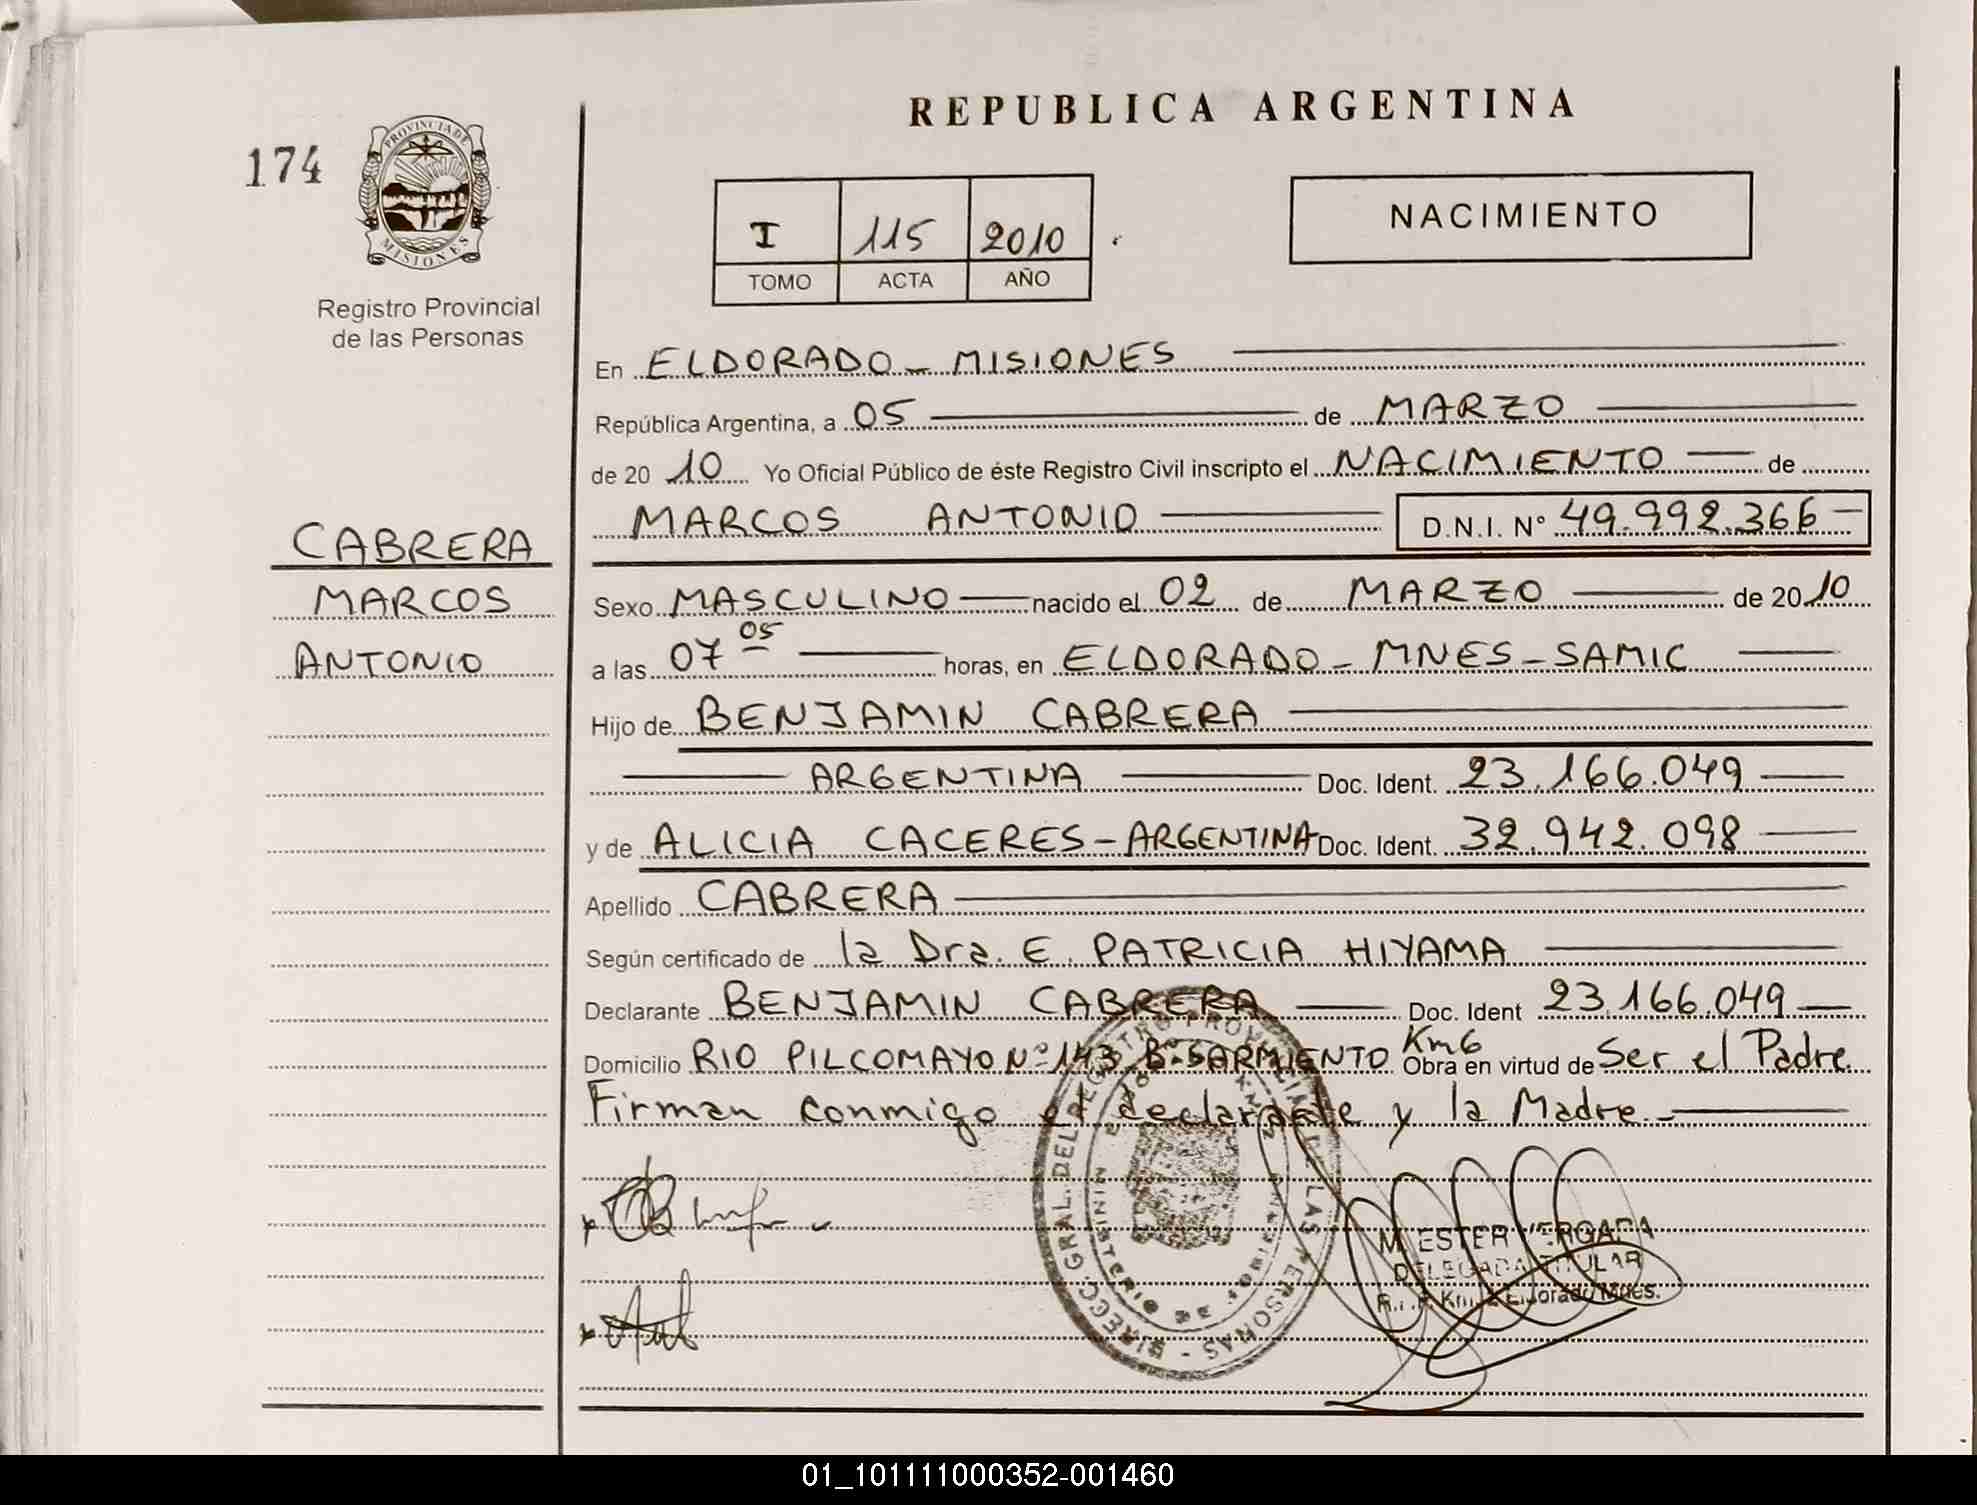 REPUBLICA ARGENTINA
174
PROVINCIA DE
MISIONES
Registro Provincial
de las Personas
I 115 2010
TOMO ACTA AÑO
NACIMIENTO
En ELDORADO - MISIONES
República Argentina, a 05 de MARZO
de 20 10 Yo Oficial Público de éste Registro Civil inscripto el NACIMIENTO de
MARCOS ANTONIO D.N.I. N° 49.992.366
CABRERA
MARCOS
ANTONIO
Sexo MASCULINO nacido el 02 de MARZO de 2010
a las 07 05 horas, en ELDORADO - MNES - SAMIC
Hijo de BENJAMIN CABRERA
ARGENTINA Doc. Ident. 23.166.049
y de ALICIA CACERES - ARGENTINA Doc. Ident. 32.942.098
Apellido CABRERA
Según certificado de la Dra. E. PATRICIA HIYAMA
Declarante BENJAMIN CABRERA Doc. Ident 23.166.049
Domicilio RIO PILCOMAYO N° 143 B° SARMIENTO Km6 Obra en virtud de Ser el Padre
Firman conmigo el declarante y la Madre.-
DIRECC. GRAL. DEL REGISTRO PROVINCIAL DE LAS PERSONAS
MINISTERIO DE
M. ESTER VERGARA
DELEGADA TITULAR
Eldorado Mnes.
01_101111000352-001460